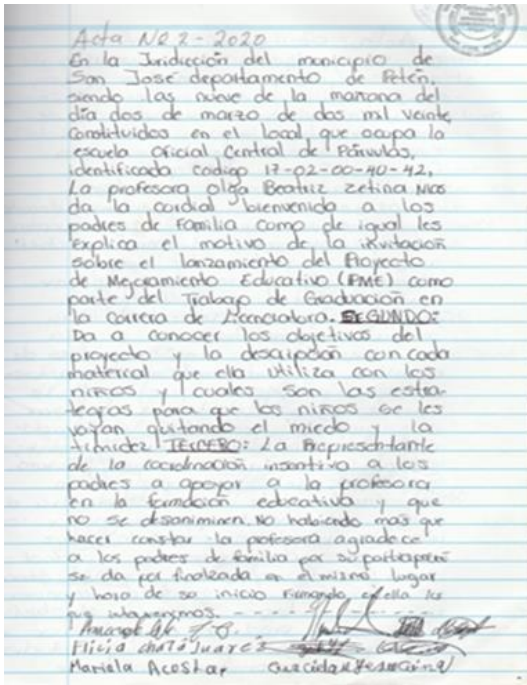 Acta No 2-2020
En la Juridicción del municipio de
San José departamento de Petén,
siendo las nueve de la mañana del
día dos de marzo de dos mil veinte,
Constituidos en el local que ocupa la
escuela Oficial Central de Párvulos,
identificada codigo 17-02-00-40-42,
La profesora Olga Beatriz Zetina
da la cordial bienvenida a los
padres de familia como de igual les
explica el motivo de la invitación
sobre el lanzamiento del Proyecto
de Mejoramiento Educativo (PME) como
parte del Trabajo de Graduación en
la Carrera de Licenciatura. SEGUNDO:
Da a conocer los objetivos del
proyecto y la descripción con cada
material que ella utiliza con los
niños y cuales son las estra-
tegias para que los niños se les
vayan quitando el miedo y la
timidez TERCERO: La Representante
de la coordinación insentiva a los
padres a apoyar a la profesora
en la formación educativa y que
no se desanimen. No habiendo más que
hacer constar la profesora agradece
a los padres de familia por su participación
se da por finalizada en el mismo lugar
y hora de su inicio Firmando en ella los
que intervenimos.
Elicia chatá Juarez
Mariela Acosta